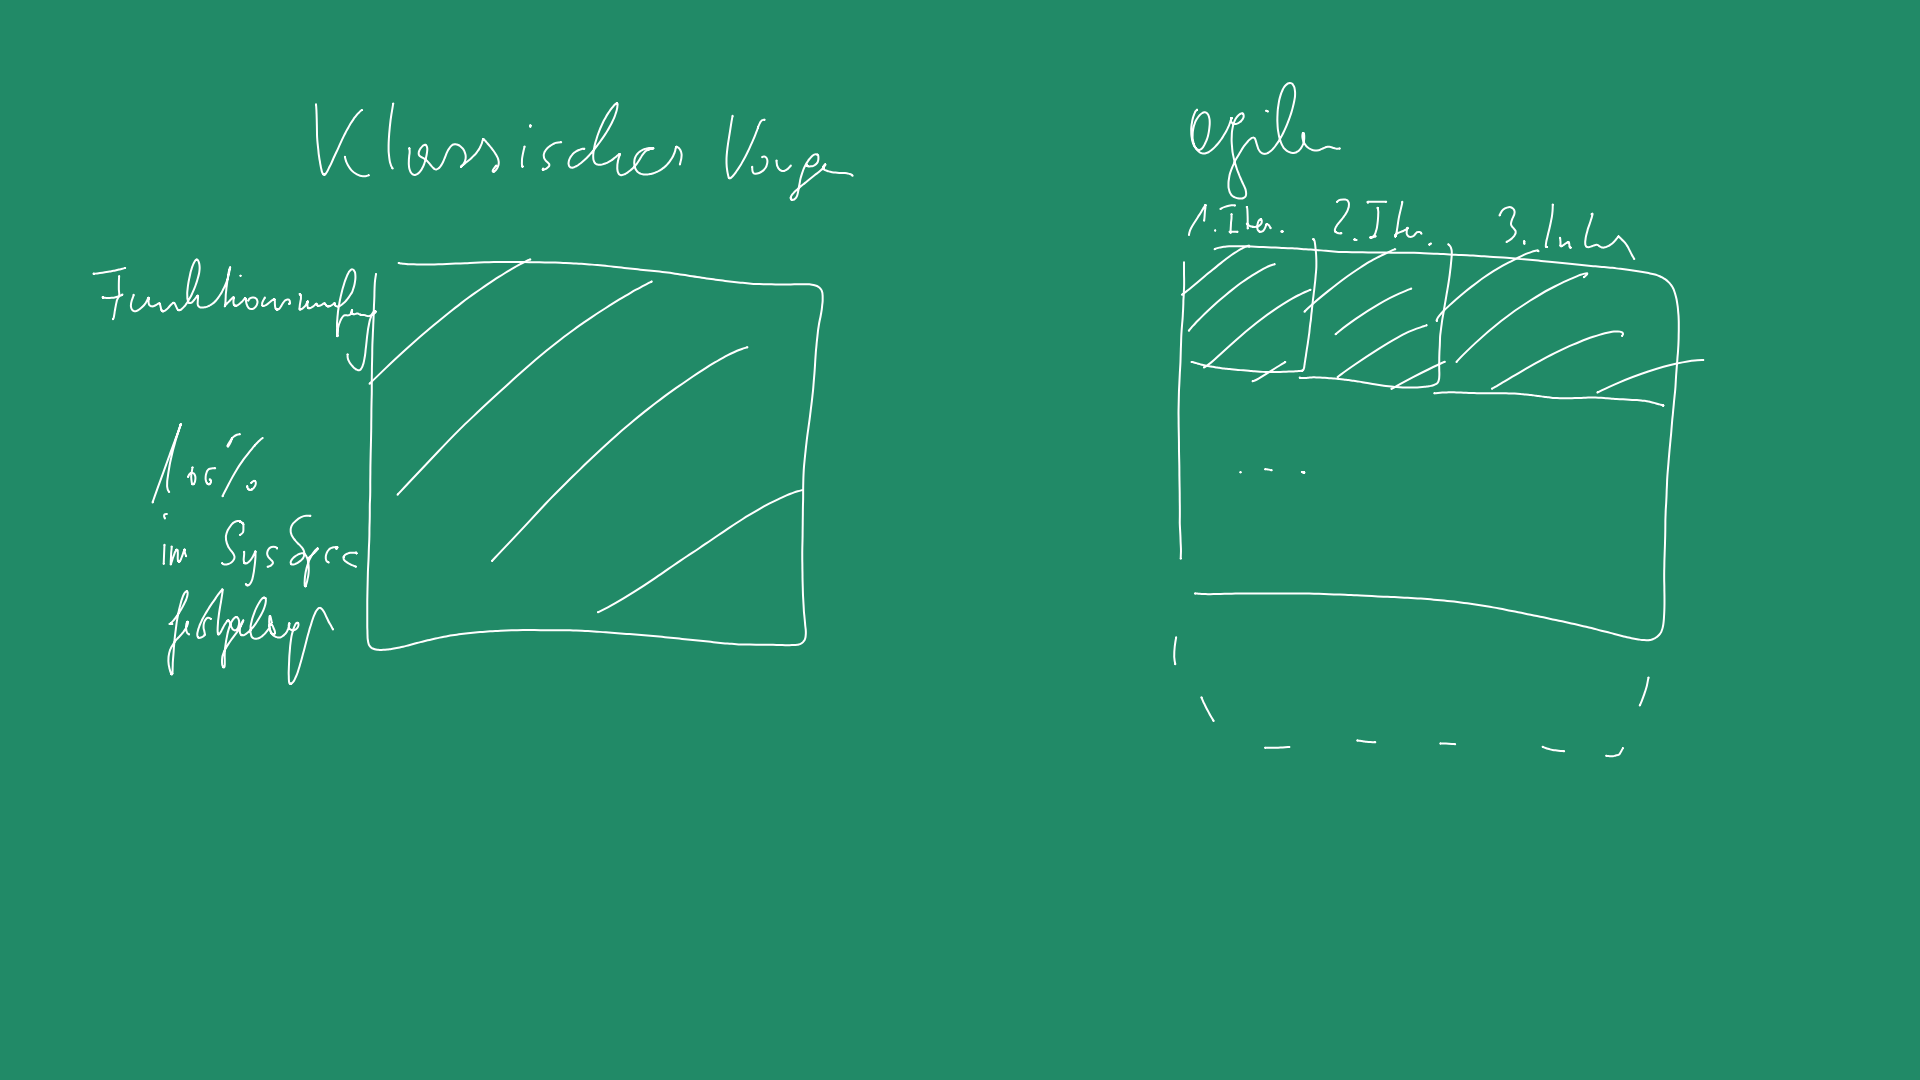 Klassisches Vorgehen
Funktionsumfang
100%
im SysSpec
festgelegt
agiles
1. Iter. 2. Iter. 3. Iter
...